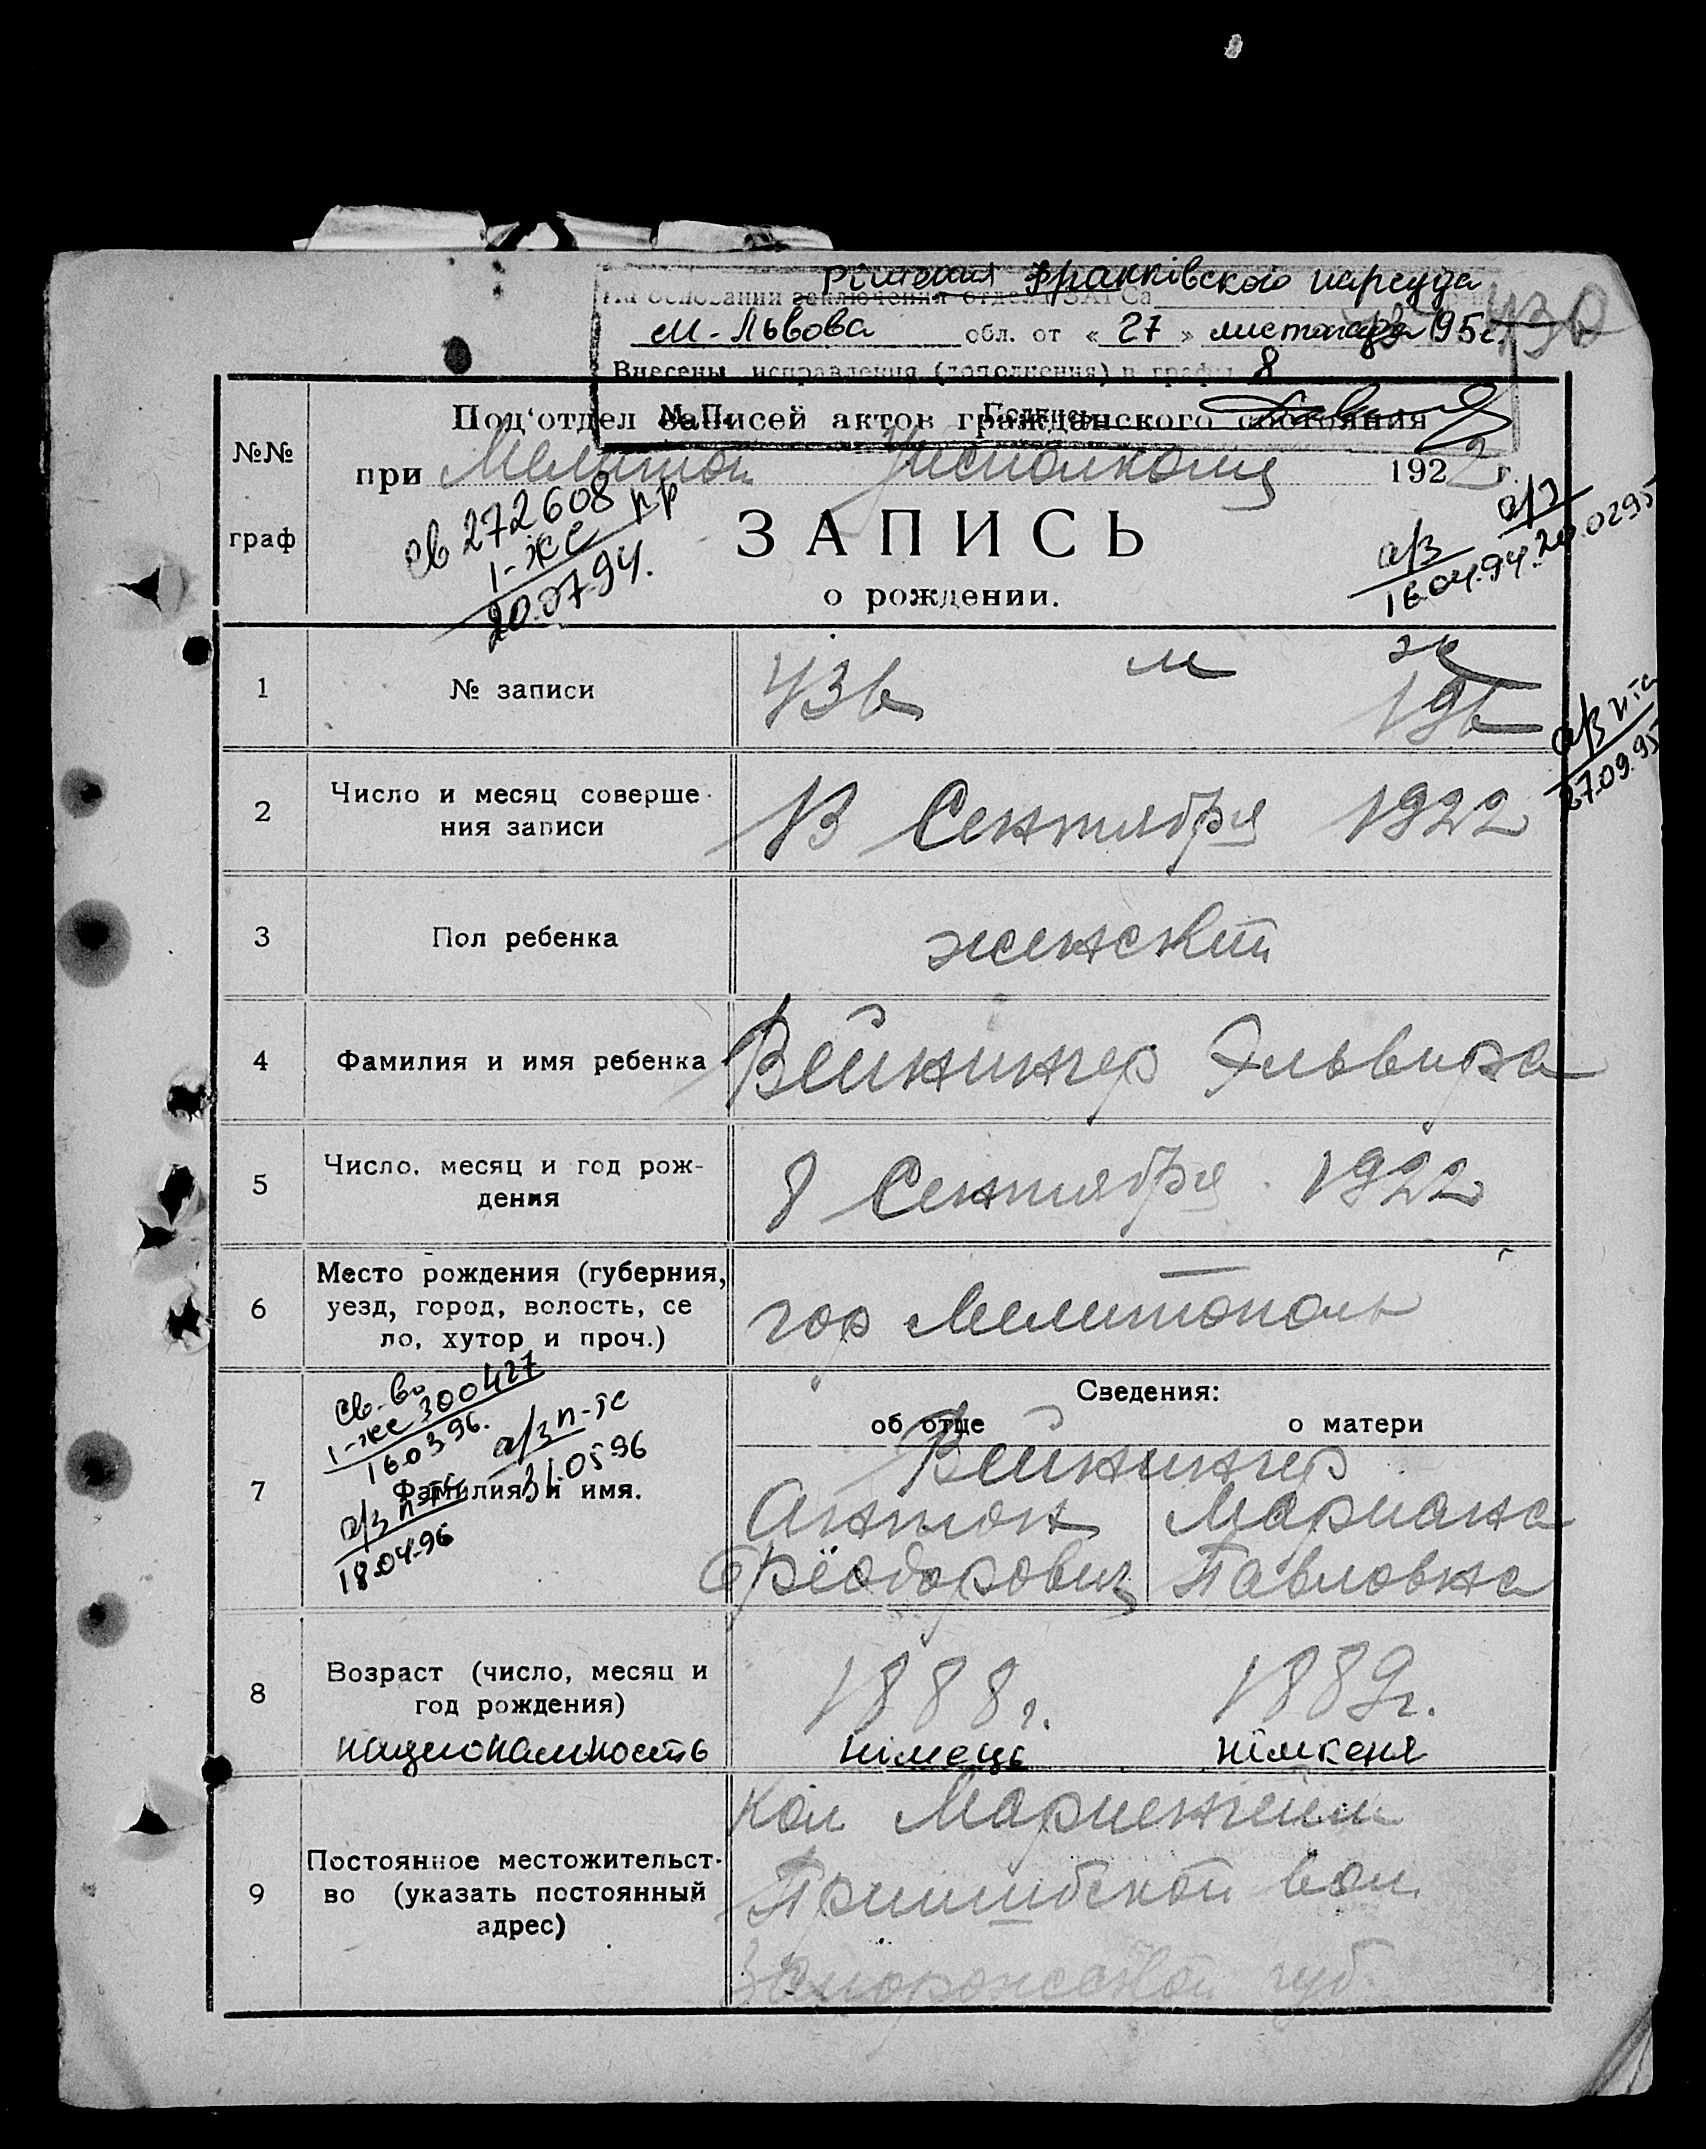 Рішення Франківского нарсуда
На основании заключения отдела ЗАГСа
м. Львова обл. от « 27 » листопада 1995г.
430
Внесены исправления (дополнения) в графы 8
М.П. Подпись
Под'отдел Записей актов гражданского состояния
при Мелитоп. Исполкоме 1922 г.
№№ граф
св 272608 пр
1-жс
20.07.94.
ЗАПИСЬ
о рождении.
а/з
16.04.94.
а/з
24.0295
1 № записи 436 м ж 196
а/з п-тс
27.09.95
2 Число и месяц соверше-
ния записи 13 Сентября 1922
3 Пол ребенка женский
4 Фамилия и имя ребенка Вейнингер Эльвира
5 Число, месяц и год рож-
дения 8 Сентября 1922
6 Место рождения (губерния,
уезд, город, волость, се
ло, хутор и проч.) гор Мелитополь
Сведения:
об отце о матери
св-во
1-жс 300427
16.03 96.
а/з п-тс
31.05 96
7 Фамилия и имя. Вейнингер
Антон Мариана
Феодорович Павловна
а/з п-тс
18.04.96
8 Возраст (число, месяц и
год рождения) 1888 г. 1889 г.
национальность німець німкеня
9 Постоянное местожительст-
во (указать постоянный
адрес)
Кол Мариенгейм
Пришибской вол.
Запорожской губ.